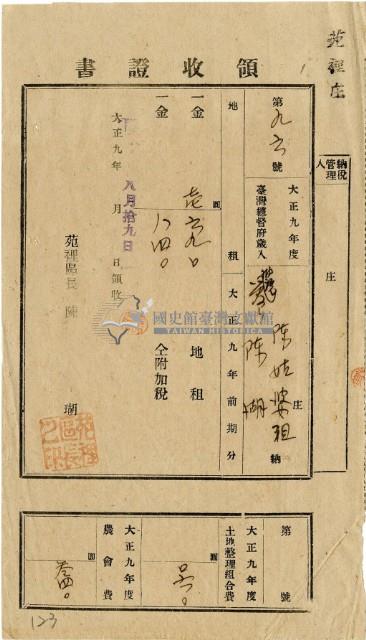 苑裡庄
領收證書
納稅管理人
庄
第九六號
大正九年度
臺灣總督府歲入
庄
陳姑婆祖
陳湖
納
地租
大正九年前期分
一金
圓
地租
一金
八四〇
仝附加稅
大正九年 月 日領收
八月拾九日
苑裡區長 陳 瑚
國史館臺灣文獻館
TAIWAN HISTORICA
第 號
大正九年度
土地整理組合費
圓
大正九年度
農會費
圓
123